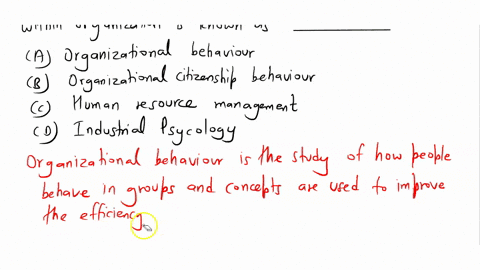 within organization is known as
(A) Organizational behaviour
(B) Organizational citizenship behaviour
(C) Human resource management
(D) Industrial Psycology
Organizational behaviour is the study of how people
behave in groups and concepts are used to improve
the efficiency